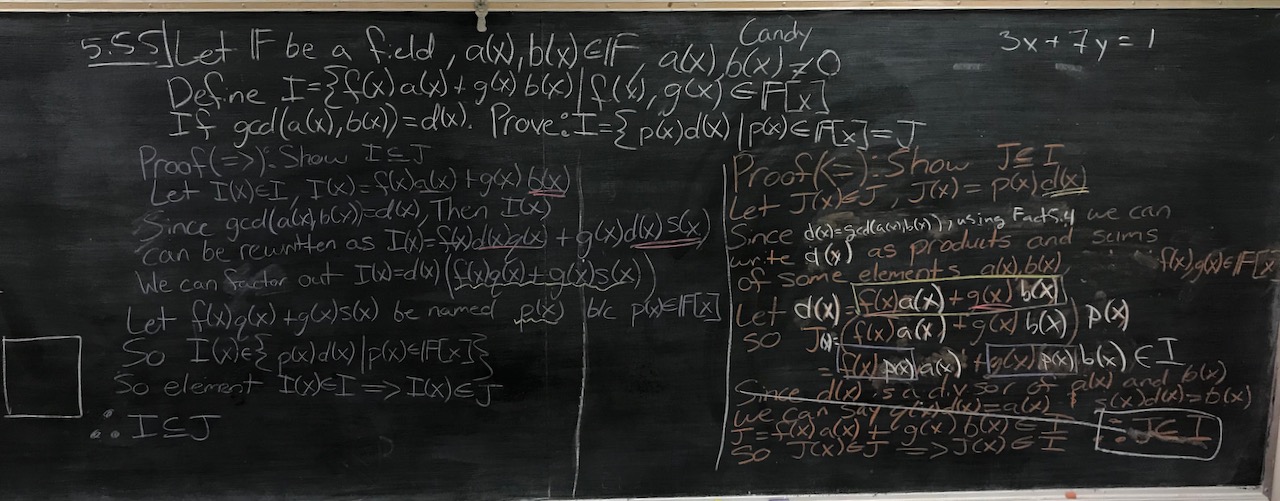 Candy
3x + 7y = 1
5.55 Let 𝔽 be a field, a(x), b(x) ∈ 𝔽, a(x), b(x) ≠ 0
Define I = {f(x) a(x) + g(x) b(x) | f(x), g(x) ∈ 𝔽[x]
If gcd(a(x), b(x)) = d(x). Prove: I = { p(x) d(x) | p(x) ∈ 𝔽[x] = J
Proof (=>): Show I ⊆ J
Let I(x) ∈ I, I(x) = f(x) a(x) + g(x) b(x)
Since gcd(a(x), b(x)) = d(x), Then I(x)
can be rewritten as I(x) = f(x) d(x) q(x) + g(x) d(x) s(x)
We can factor out I(x) = d(x) (f(x) q(x) + g(x) s(x))
Let f(x) q(x) + g(x) s(x) be named p(x) b/c p(x) ∈ 𝔽[x]
So I(x) ∈ { p(x) d(x) | p(x) ∈ 𝔽[x] }
So element I(x) ∈ I => I(x) ∈ J
∴ I ⊆ J
Proof (<=): Show J ⊆ I
Let J(x) ∈ J, J(x) = p(x) d(x)
Since d(x) = gcd(a(x), b(x)), using Fact 5.4 we can
write d(x) as products and sums
of some elements a(x), b(x), f(x), g(x) ∈ 𝔽[x]
Let d(x) = f(x) a(x) + g(x) b(x)
so J(x) = (f(x) a(x) + g(x) b(x)) p(x)
= f(x) p(x) a(x) + g(x) p(x) b(x) ∈ I
Since d(x) is a divisor of a(x) and b(x)
we can say q(x) d(x) = a(x) & s(x) d(x) = b(x)
J = f(x) a(x) + g(x) b(x) ∈ I
So J(x) ∈ J => J(x) ∈ I
∴ J ⊆ I